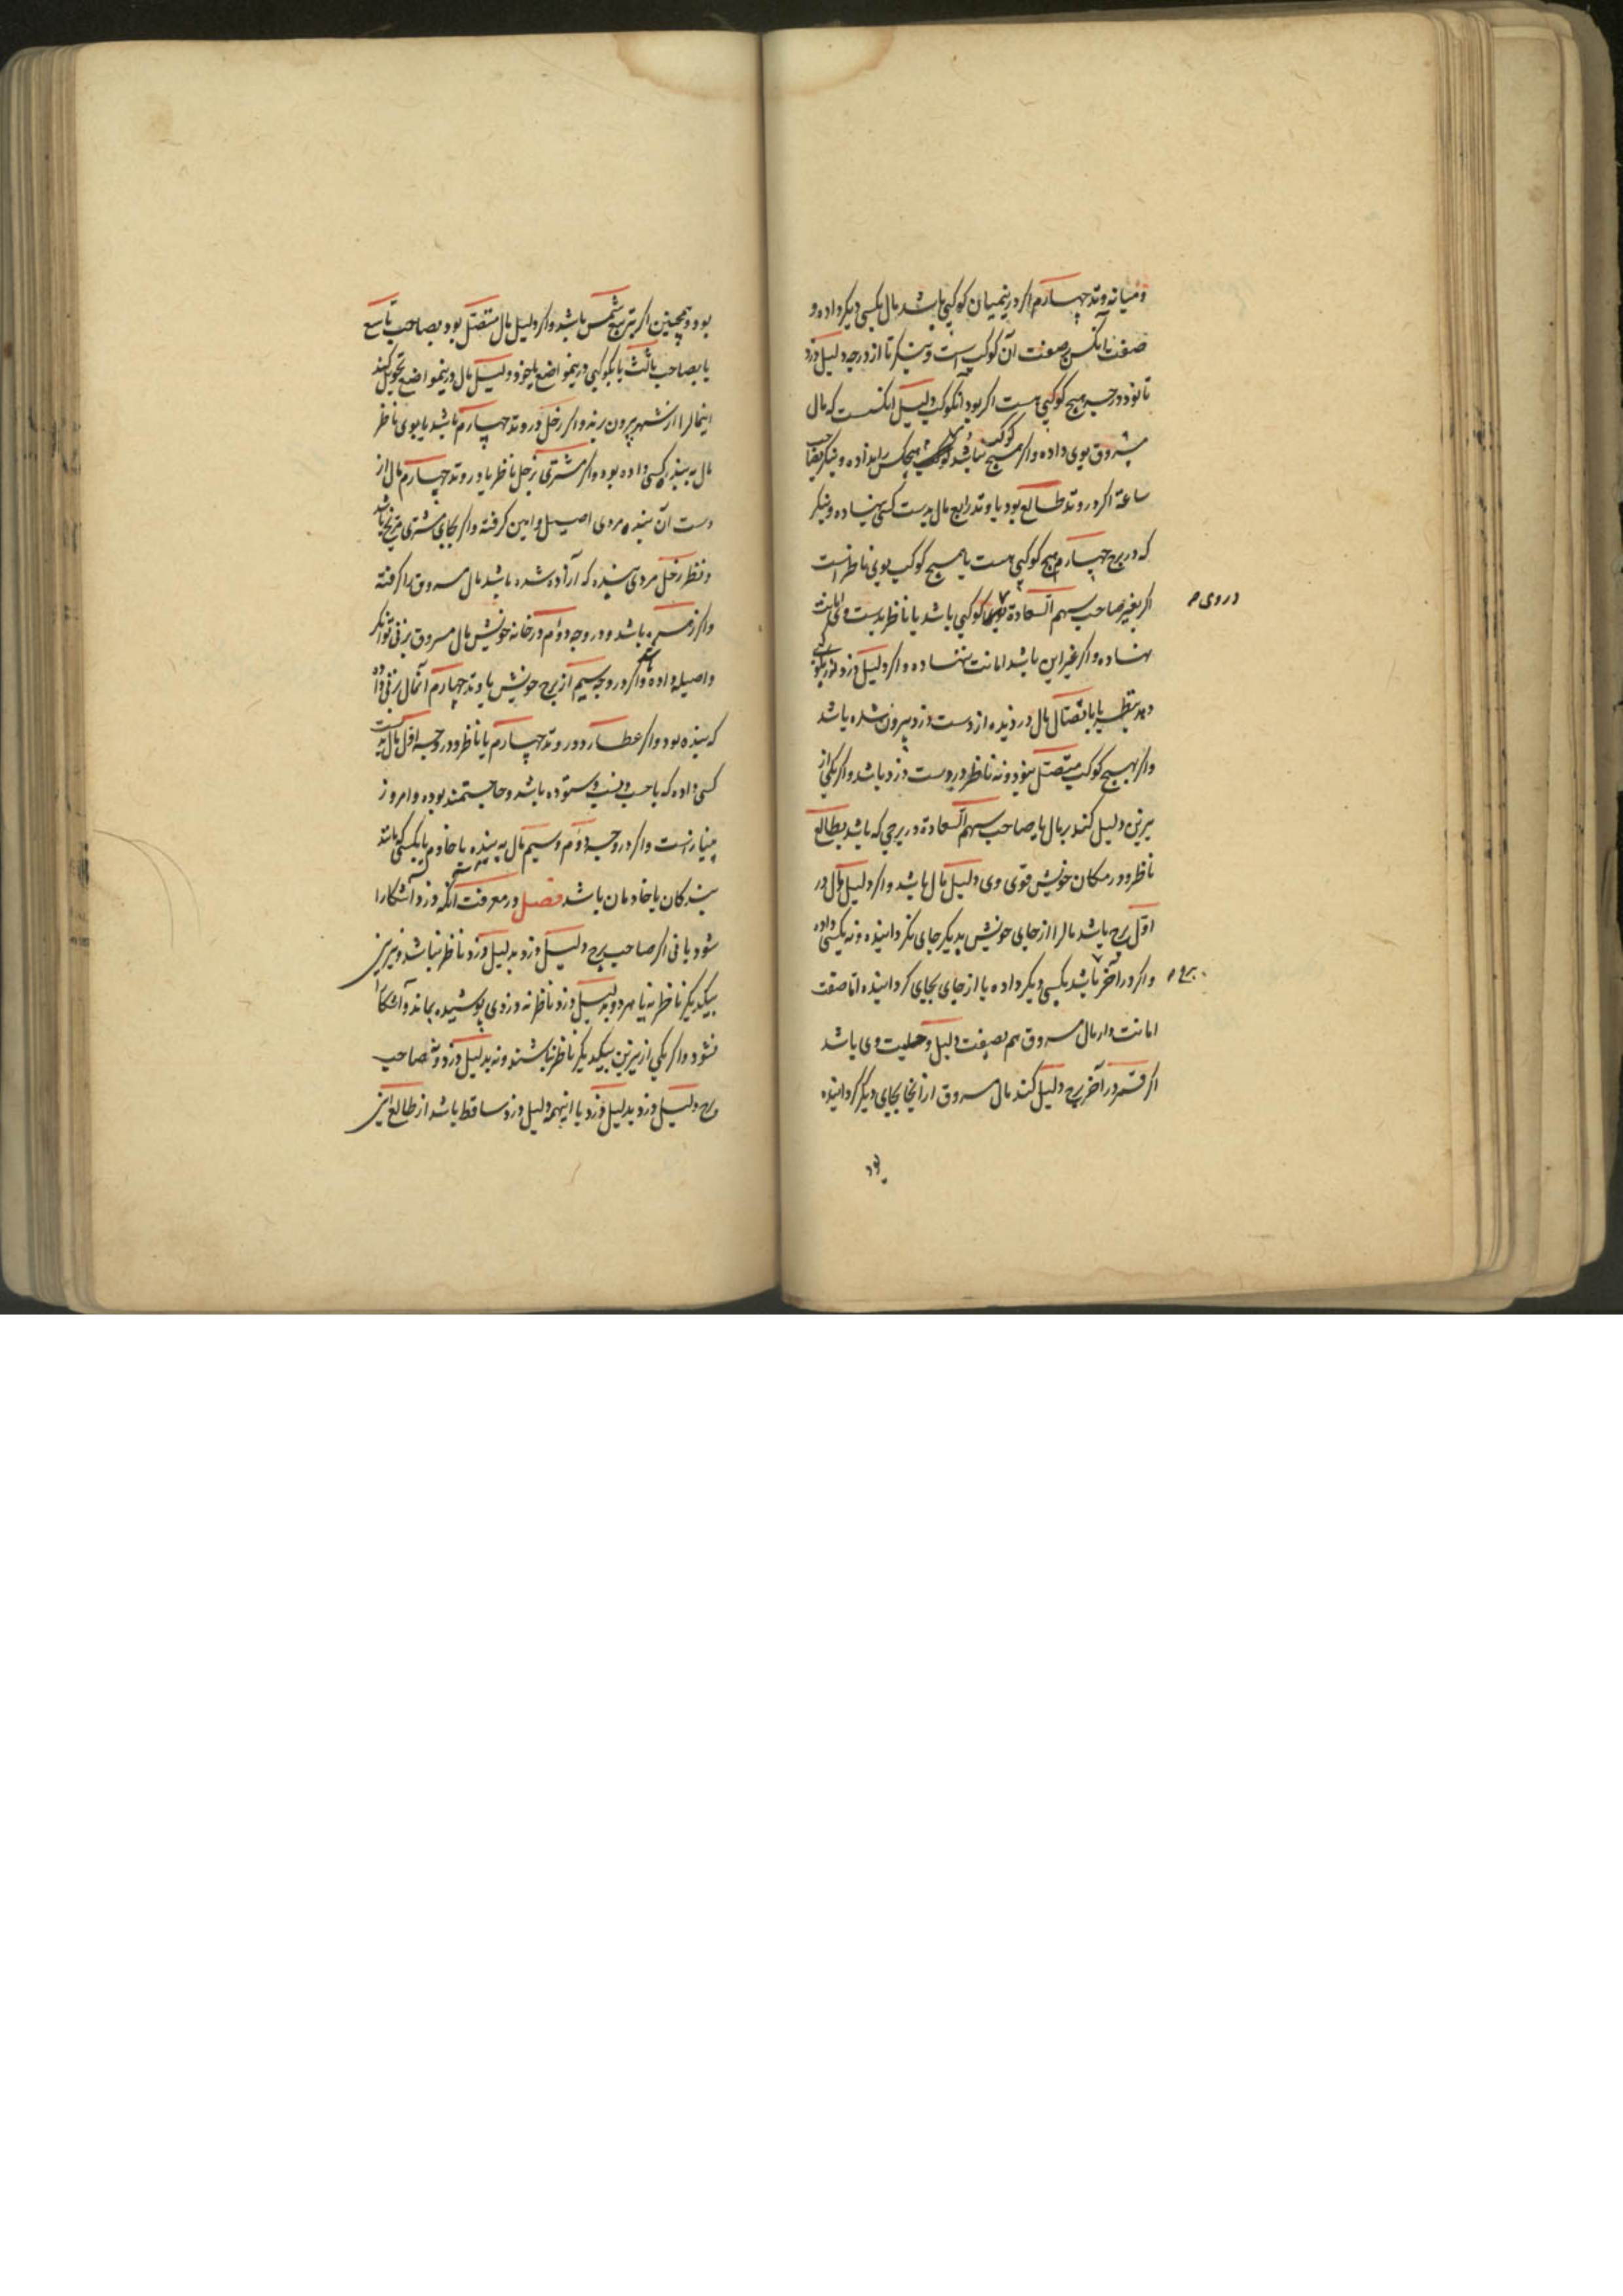 ومیانه وتد چهارم اکر درینمیان کوکبی باشد مال بکسی دیکر داده و
صفت آنکس صفت آن کوکب است وبنکر تا از درجه دلیل دزد
تا نود درجه هیچ کوکبی هست اکر بود آنکوکب دلیل آنکست که مال
مسروق بوی داده واکر هیچ کوکب نباشد بهیچکس را نداده وبنکر بصاحب
ساعة اکر در وتد طالع بود یا وتد رابع مال بدست کسی نهاده وبنکر
که در برج چهارم هیچ کوکبی هست یا هیچ کوکب بوی ناظر است
اکر بغیر صاحب سهم السعادة کوکبی باشد یا ناظر بدست وی امانت
در وی
نهاده واکر غیر این باشد امانت ننهاده واکر دلیل دزد نور بکوکبی
دهد بنظر یا باتصال مال دزدیده از دست دزد بیرون شده باشد
واکر بهیچ کوکب متصل نبود ونه ناظر در دست دزد باشد واکر یکی از
نیرین دلیل کند بر مال یا صاحب سهم السعادة در برجی که باشد بطالع
ناظر ودر مکان خویش قوی وی دلیل مال باشد واکر دلیل مال در
اول برج باشد مالرا از جای خویش بدیکر جای نکردانیده ونه بکسی داده
واکر در آخر باشد بکسی دیکر داده یا از جای بجای کردانیده اما صفت
برج
امانت دار مال مسروق هم بصفت دلیل وحلیت وی باشد
اکر قمر در آخر برج دلیل کند مال مسروق از آنجا بجای دیکر کردانیده
بود
بود وهمچنین اکر بتربیع شمس باشد واکر دلیل مال متصل بود بصاحب تاسع
یا بصاحب ثالث یا بکوکبی درینمواضع یا خود دلیل مال درینمواضع تحویل کند
اینمالرا از شهر بیرون برند واکر زحل در وتد چهارم باشد یا بوی ناظر
مال به بنده کسی داده بود واکر مشتری بزحل ناظر یا در وتد چهارم مال از
دست آن بنده مردی اصیل وامین کرفته واکر بجای مشتری مریخ باشد
ونظر زحل مردی بنده که آزاده شده باشد مال مسروق را کرفته
واکر زهره باشد ودر وجه دوم در خانه خویش مال مسروق بزنی توانکر
واصیله داده باشد واکر در وجه سیم از برج خویش یا وتد چهارم آنمال بزنی داده
که بنده بود واکر عطارد در وتد چهارم یا ناظر ودر وجه اول مال بدست
کسی داده که با حسب ونسب وستوده باشد وحاجتمند بوده وامروز
بی‌نیاز است واکر در وجه دوم وسیم مال به بنده یا خادم یا بکسی که مانند
بندکان یا خادمان باشد فصل در معرفت آنکه دزد آشکارا
شود یا نی اکر صاحب برج دلیل دزد بدلیل دزد ناظر نباشد ونیرین
بیکدیکر ناظر نه یا هر دو بدلیل دزد ناظر نه دزدی پوشیده بماند وآشکارا
نشود واکر یکی از نیرین بیکدیکر ناظر نباشند ونه بدلیل دزد ونه صاحب
برج دلیل دزد بدلیل دزد با اینهمه دلیل دزد ساقط باشد از طالع این